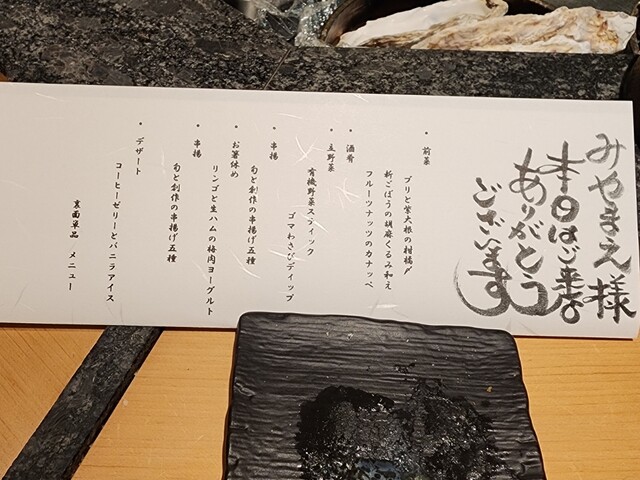 みやまえ様
本日はご来店
ありがとう
ございます
・前菜
ブリと紫大根の柑橘〆
・酒肴
新ごぼうの胡麻くるみ和え
フルーツナッツのカナッペ
・立野菜
有機野菜スティック
ゴマわさびディップ
・串揚
旬と創作の串揚げ五種
・お箸休め
リンゴと生ハムの梅肉ヨーグルト
・串揚
旬と創作の串揚げ五種
・デザート
コーヒーゼリーとバニラアイス
裏面単品 メニュー